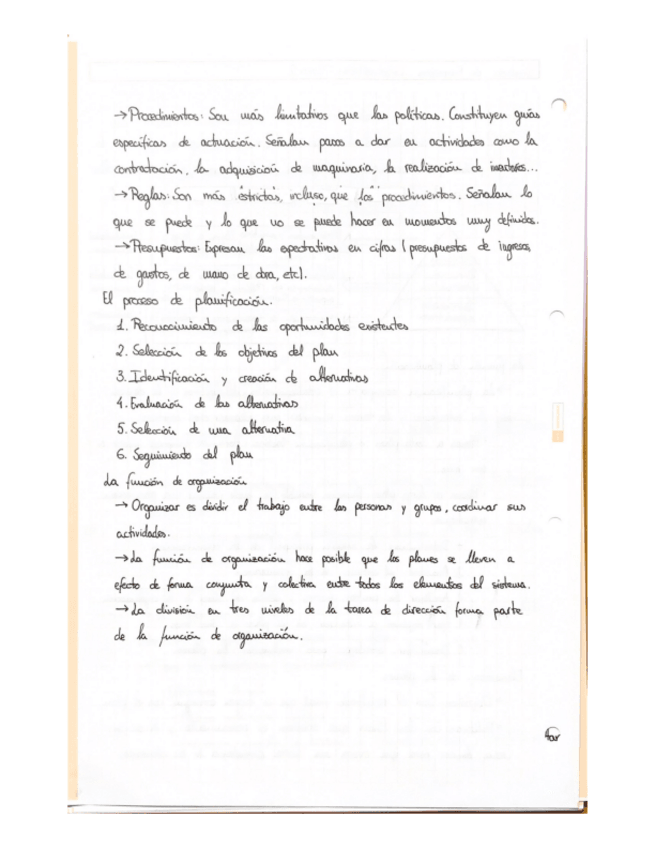 →Procedimientos: Son más limitativos que las políticas. Constituyen guías
específicas de actuación. Señalan pasos a dar en actividades como la
contratación, la adquisición de maquinaria, la realización de
→Reglas: Son más "estrictas", incluso, que "los" procedimientos. Señalan lo
que se puede y lo que no se puede hacer en momentos muy definidos.
→Presupuestos: Expresan las expectativas en cifras (presupuestos de ingresos,
de gastos, de mano de obra, etc).
El proceso de planificación.
1. Reconocimiento de las oportunidades existentes
2. Selección de los objetivos del plan
3. Identificación y creación de alternativas
4. Evaluación de las alternativas
5. Selección de una alternativa
6. Seguimiento del plan
La función de organización
→Organizar es dividir el trabajo entre las personas y grupos, coordinar sus
actividades.
→La función de organización hace posible que los planes se lleven a
efecto de forma conjunta y colectiva entre todos los elementos del sistema.
→La división en tres niveles de la tarea de dirección forma parte
de la función de organización.